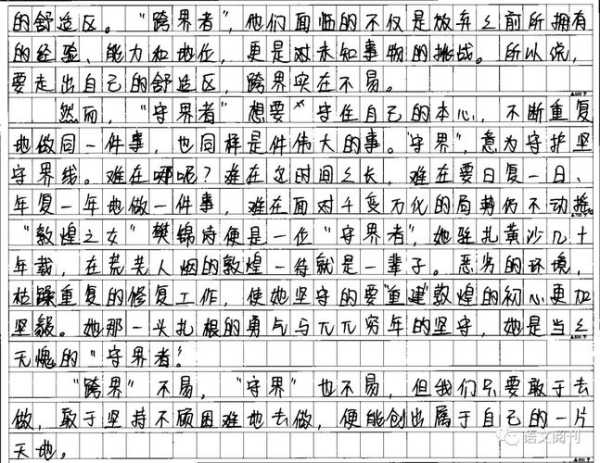 的舒适区。“跨界者”,他们面临的不仅是放弃之前所拥有
的经验、能力和地位,更是对未知事物的挑战。所以说,
要走出自己的舒适区,跨界实在不易。
然而,“守界者”想要守住自己的本心,不断重复
地做同一件事,也同样是件伟大的事。“守界”,意为守护坚
守界线。难在哪呢?难在它时间之长,难在要日复一日、
年复一年地做一件事,难在面对千变万化的局势仍不动摇。
“敦煌之女”樊锦诗便是一位“守界者”,她驻扎黄沙几十
年载,在荒芜人烟的敦煌一待就是一辈子。恶劣的环境,
枯躁重复的修复工作,使她坚守的要“重建”敦煌的初心更加
坚毅。她那一头扎根的勇气与兀兀穷年的坚守,她是当之
无愧的“守界者”。
“跨界”不易,“守界”也不易,但我们只要敢于去
做,敢于坚持不顾困难地去做,便能创出属于自己的一片
天地。
语文周刊